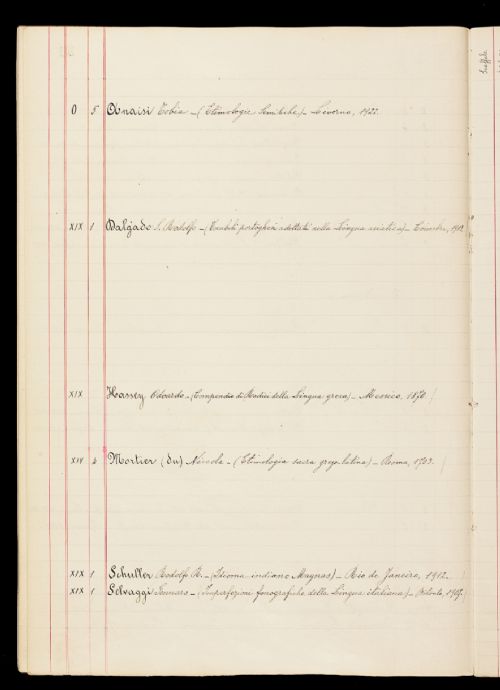 O 5 Anaisi Tobia – (Etimologie Semitiche) – Livorno, 1922.
XIX 1 Dalgado S. Rodolfo – (Vocaboli portoghesi adottati nella Lingua asiatica) – Coimbra, 1913
XIX Hassey Odoardo – (Compendio di Radici della Lingua greca) – Messico, 1870
XIV 4 Mortier (du) Niccola – (Etimologia sacra greco-latina) – Roma, 1703.
XIX 1 Schuller Rodolfo R. – (Idioma indiano Maynas) – Rio de Janeiro, 1912.
XIX 1 Selvaggi Gennaro – (Imperfezioni fonografiche della Lingua italiana) –